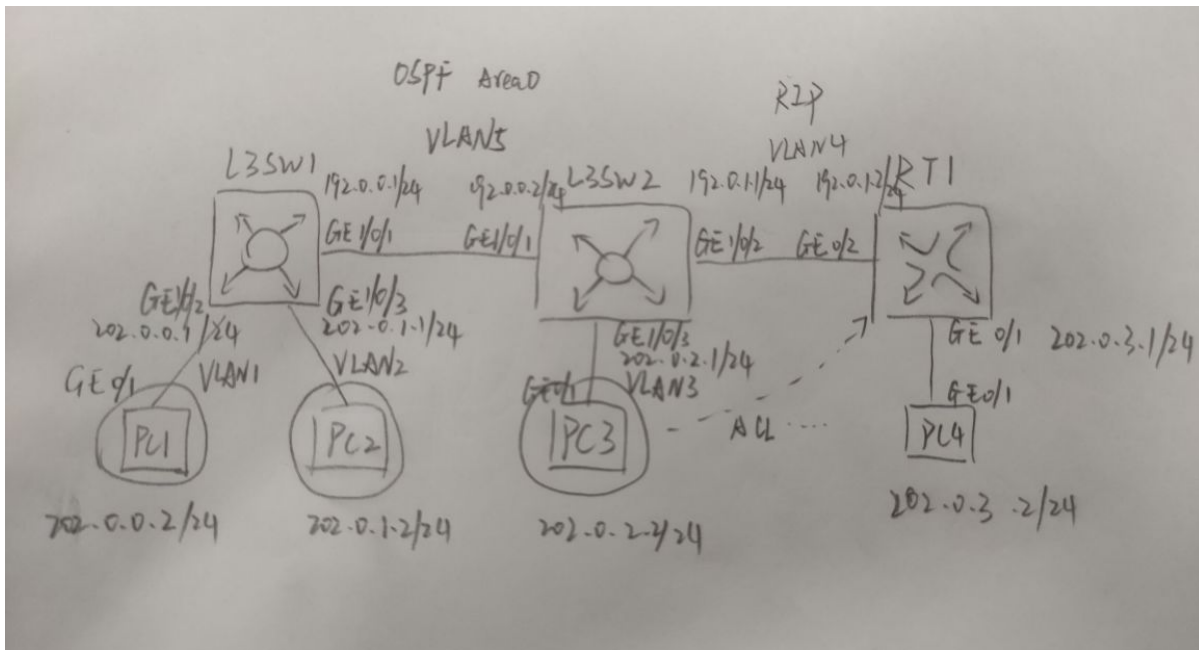 OSPF Area0
RIP
VLAN5
VLAN4
L3SW1
L3SW2
RT1
192.0.0.1/24
192.0.0.2/24
192.0.1.1/24
192.0.1.2/24
GE1/0/1
GE1/0/1
GE1/0/2
GE0/2
GE1/0/2
202.0.0.1/24
GE1/0/3
202.0.1.1/24
GE1/0/3
202.0.2.1/24
GE0/1
202.0.3.1/24
GE0/1
VLAN1
VLAN2
GE0/1
VLAN3
GE0/1
PC1
PC2
PC3
ACL
PC4
202.0.0.2/24
202.0.1.2/24
202.0.2.2/24
202.0.3.2/24